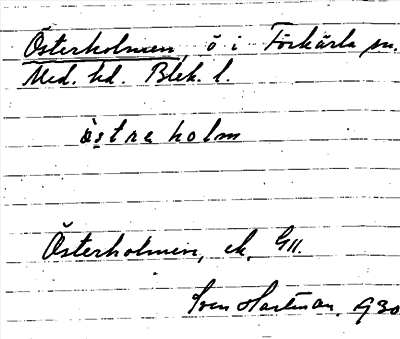 Österholmen, ö i Förkärla sn.
Med. hd. Blek. l.
östre holm
Österholmen, ek. GII.
Sven Hartman. 930